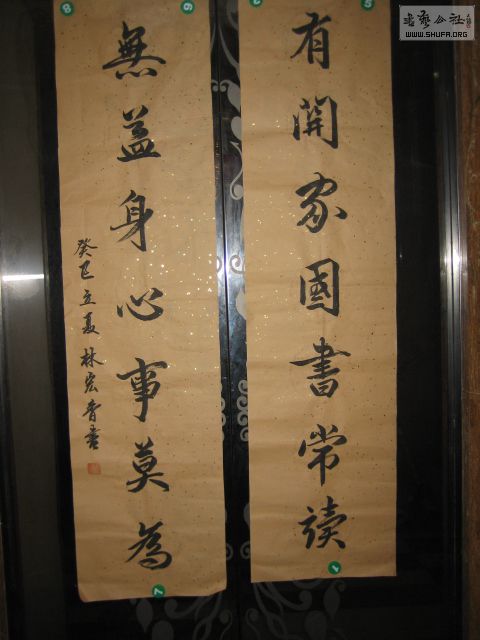 書藝公社
WWW.SHUFA.ORG
有開家國書常读
無益身心事莫為
癸巳立夏林宏香書